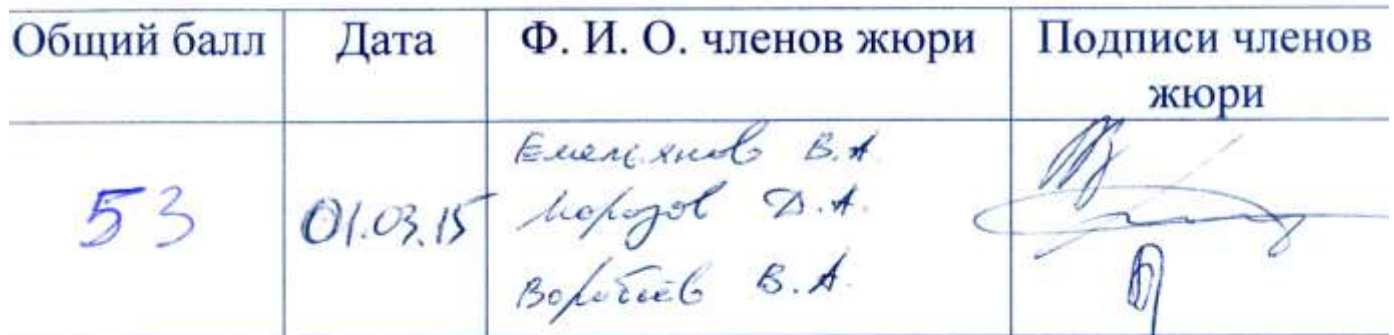 Общий балл
Дата
Ф. И. О. членов жюри
Подписи членов
жюри
53
01.03.15
Емельянов В.А.
Морозов Д.А.
Воробьёв В.А.